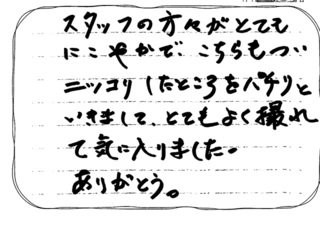 スタッフの方々がとても
にこやかで、こちらもつい
ニッコリしたところをパチリと
いきまして、とてもよく撮れ
て気に入りました。
ありがとう。